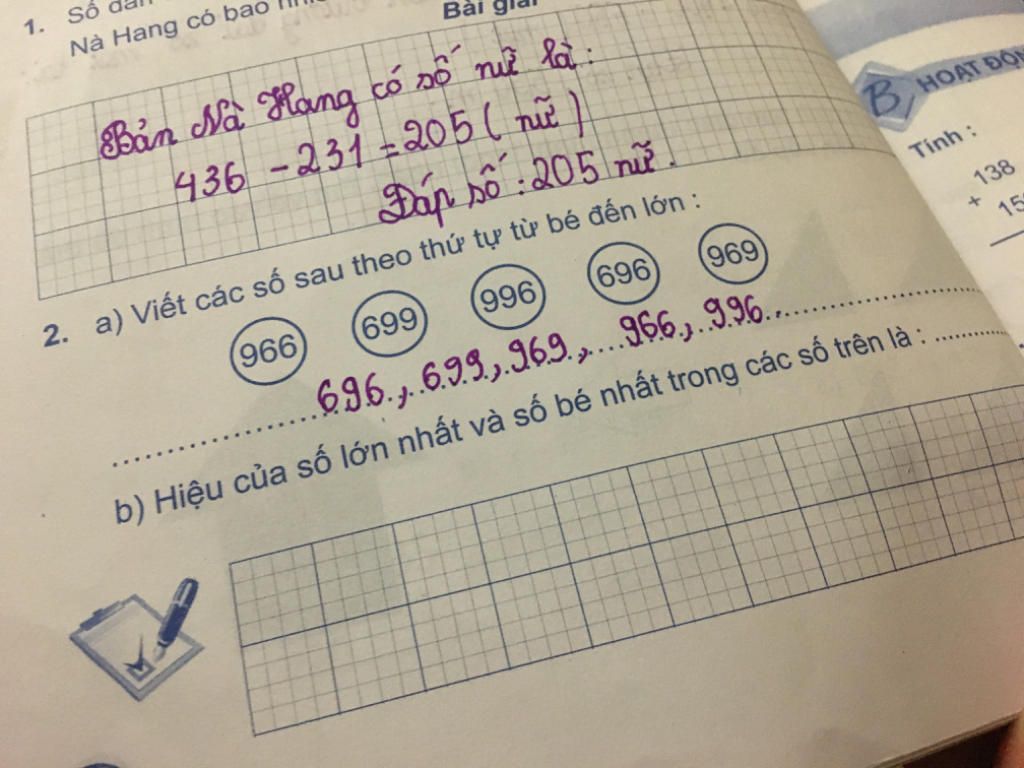 1. Số dân
Nà Hang có bao
Bài giải
Bản Nà Hang có số nữ là:
436 - 231 = 205 ( nữ )
Đáp số : 205 nữ.
2. a) Viết các số sau theo thứ tự từ bé đến lớn :
966 699 996 696 969
696, 699, 969, 966, 996
b) Hiệu của số lớn nhất và số bé nhất trong các số trên là :
B, HOẠT ĐỘN
Tính :
138
+
15